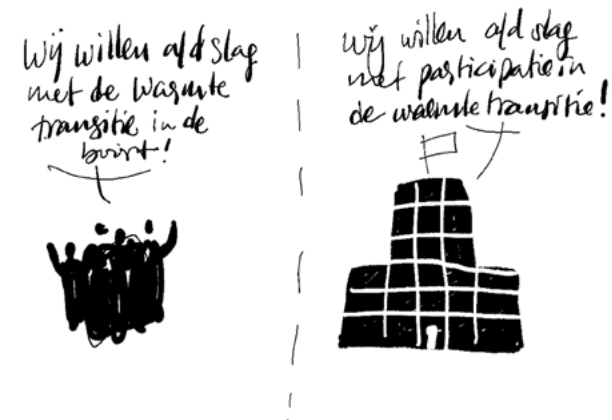 Wij willen a/d slag
met de warmte
transitie in de
buurt!
Wij willen a/d slag
met participatie in
de warmte transitie!